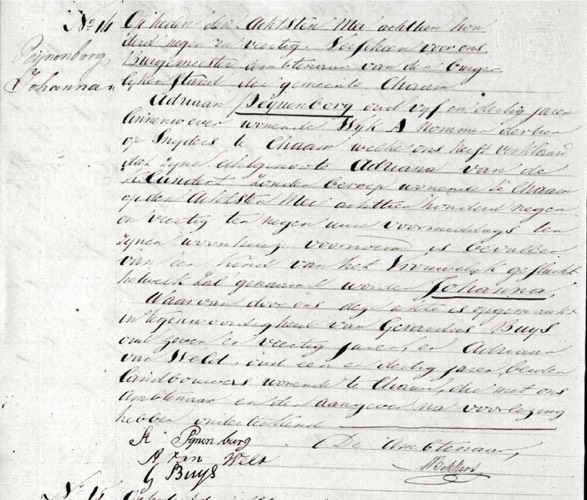 No 14
Pijnenborg
Johanna
Op heden den Achtsten Mei achttien hon
derd negen en veertig Verscheen voor ons
Burgemeester Ambtenaar van den burger
lijken stand der gemeente Chaam
Adriaan Pijnenborg oud vijf en dertig jaren
linnenwever wonende Wijk A nommer dertien
op Snijders te Chaam welke ons heeft verklaard
dat zijne echtgenoote Adriana van de
Klundert zonder beroep wonende te Chaam
op den Achtsten Mei achttien honderd negen
en veertig ten negen ure voormiddags ten
zijnen woonhuize voornoemd is bevallen
van een Kind van het Vrouwelijk geslacht
hetwelk zal genaamd worden Johanna
Waarvan door ons deze akte is opgemaakt
in tegenwoordigheid van Gerardus Buijs
oud zeven en veertig jaren, en Adriaan
van Welt oud een en dertig jaren, beiden
landbouwers wonende te Chaam, die met ons
Ambtenaar en den aangever na voorlezing
hebben onderteekend
A Pijnenburg
De Ambtenaar,
A van Welt
G Buijs